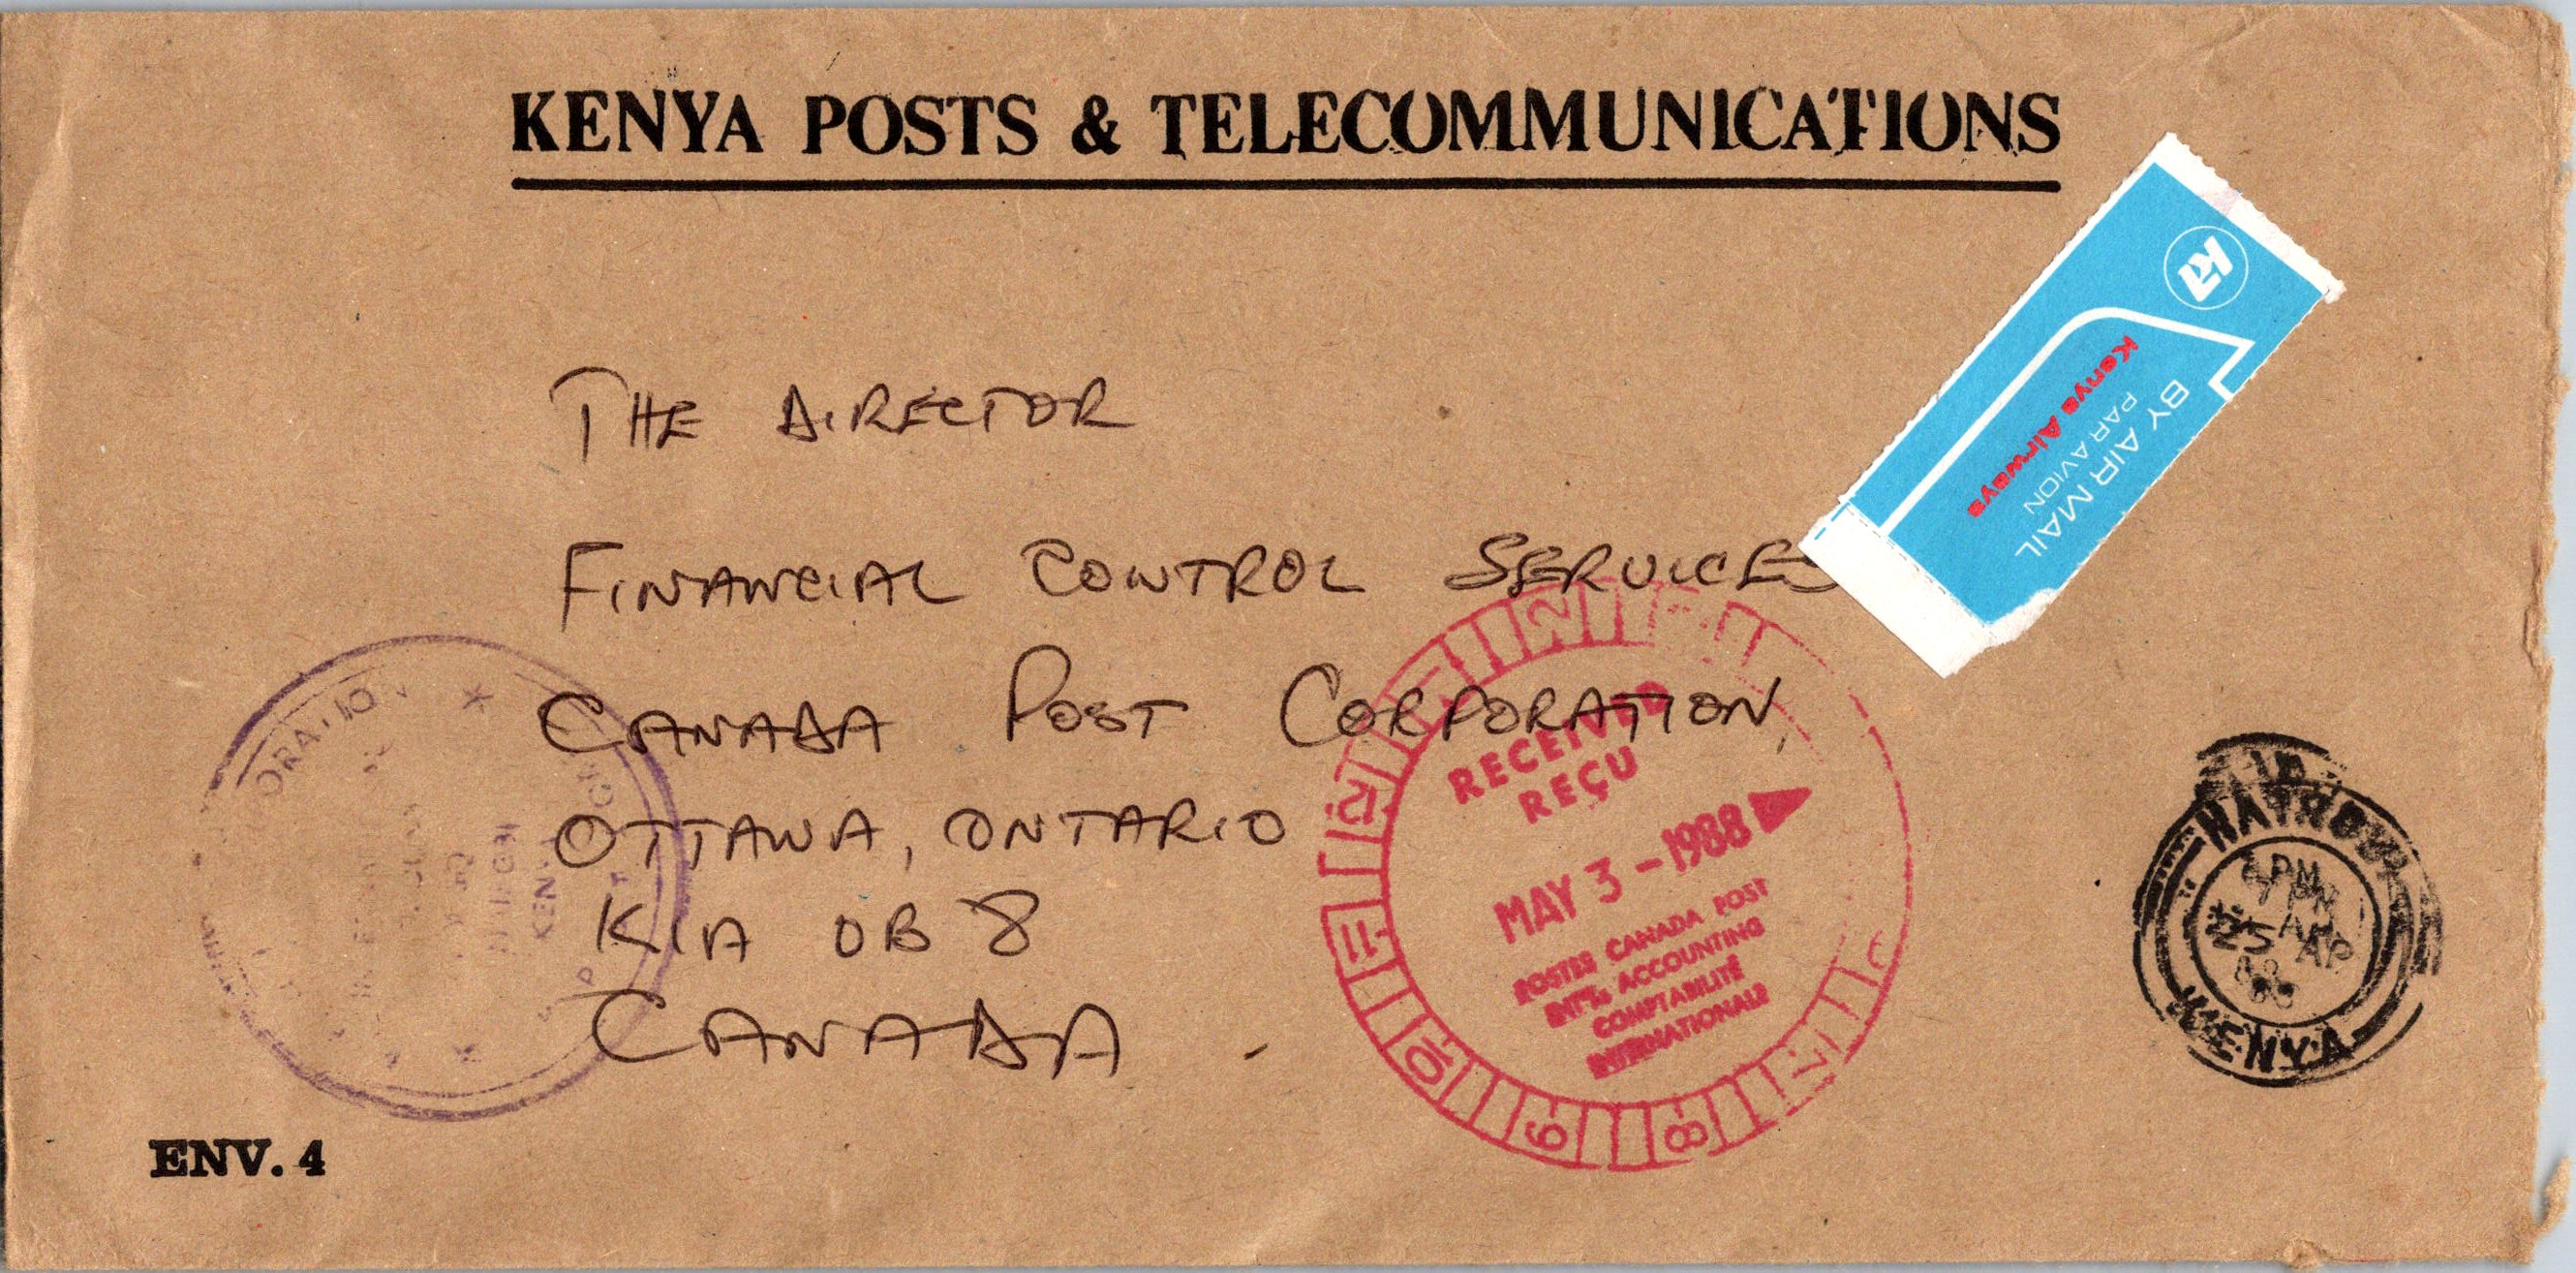 KENYA POSTS & TELECOMMUNICATIONS
BY AIR MAIL
PAR AVION
Kenya Airways
THE DIRECTOR
FINANCIAL CONTROL SERVICES
CANADA POST CORPORATION,
OTTAWA, ONTARIO
K1A 0B8
CANADA
RECEIVED
REÇU
MAY 3 - 1988
POSTES CANADA POST
INT'L ACCOUNTING
COMPTABILITÉ
INTERNATIONALE
12
11
10
9
8
7
NAIROBI
25 AP
88
KENYA
KENYA
ENV. 4